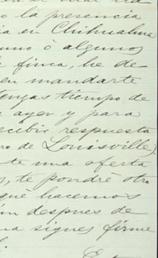 o la presencia
ia en Chihuahua
uno o algunos
finca, he de
en mandarte
tengas tiempo de
ayer y para
recibir respuesta
ro de Louisville)
te una oferta
s, te pondré otro
qué hacemos
despues de
sigues firme